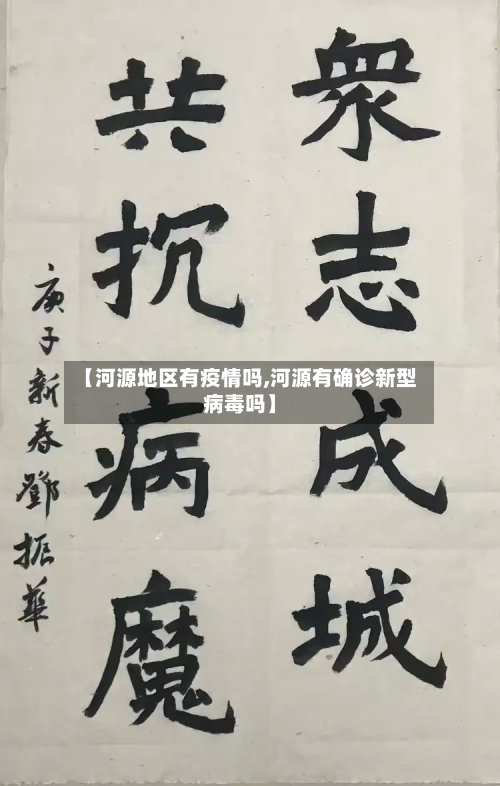 衆志成城
共抗病魔
庚子新春鄧振華
【河源地区有疫情吗,河源有确诊新型
病毒吗】